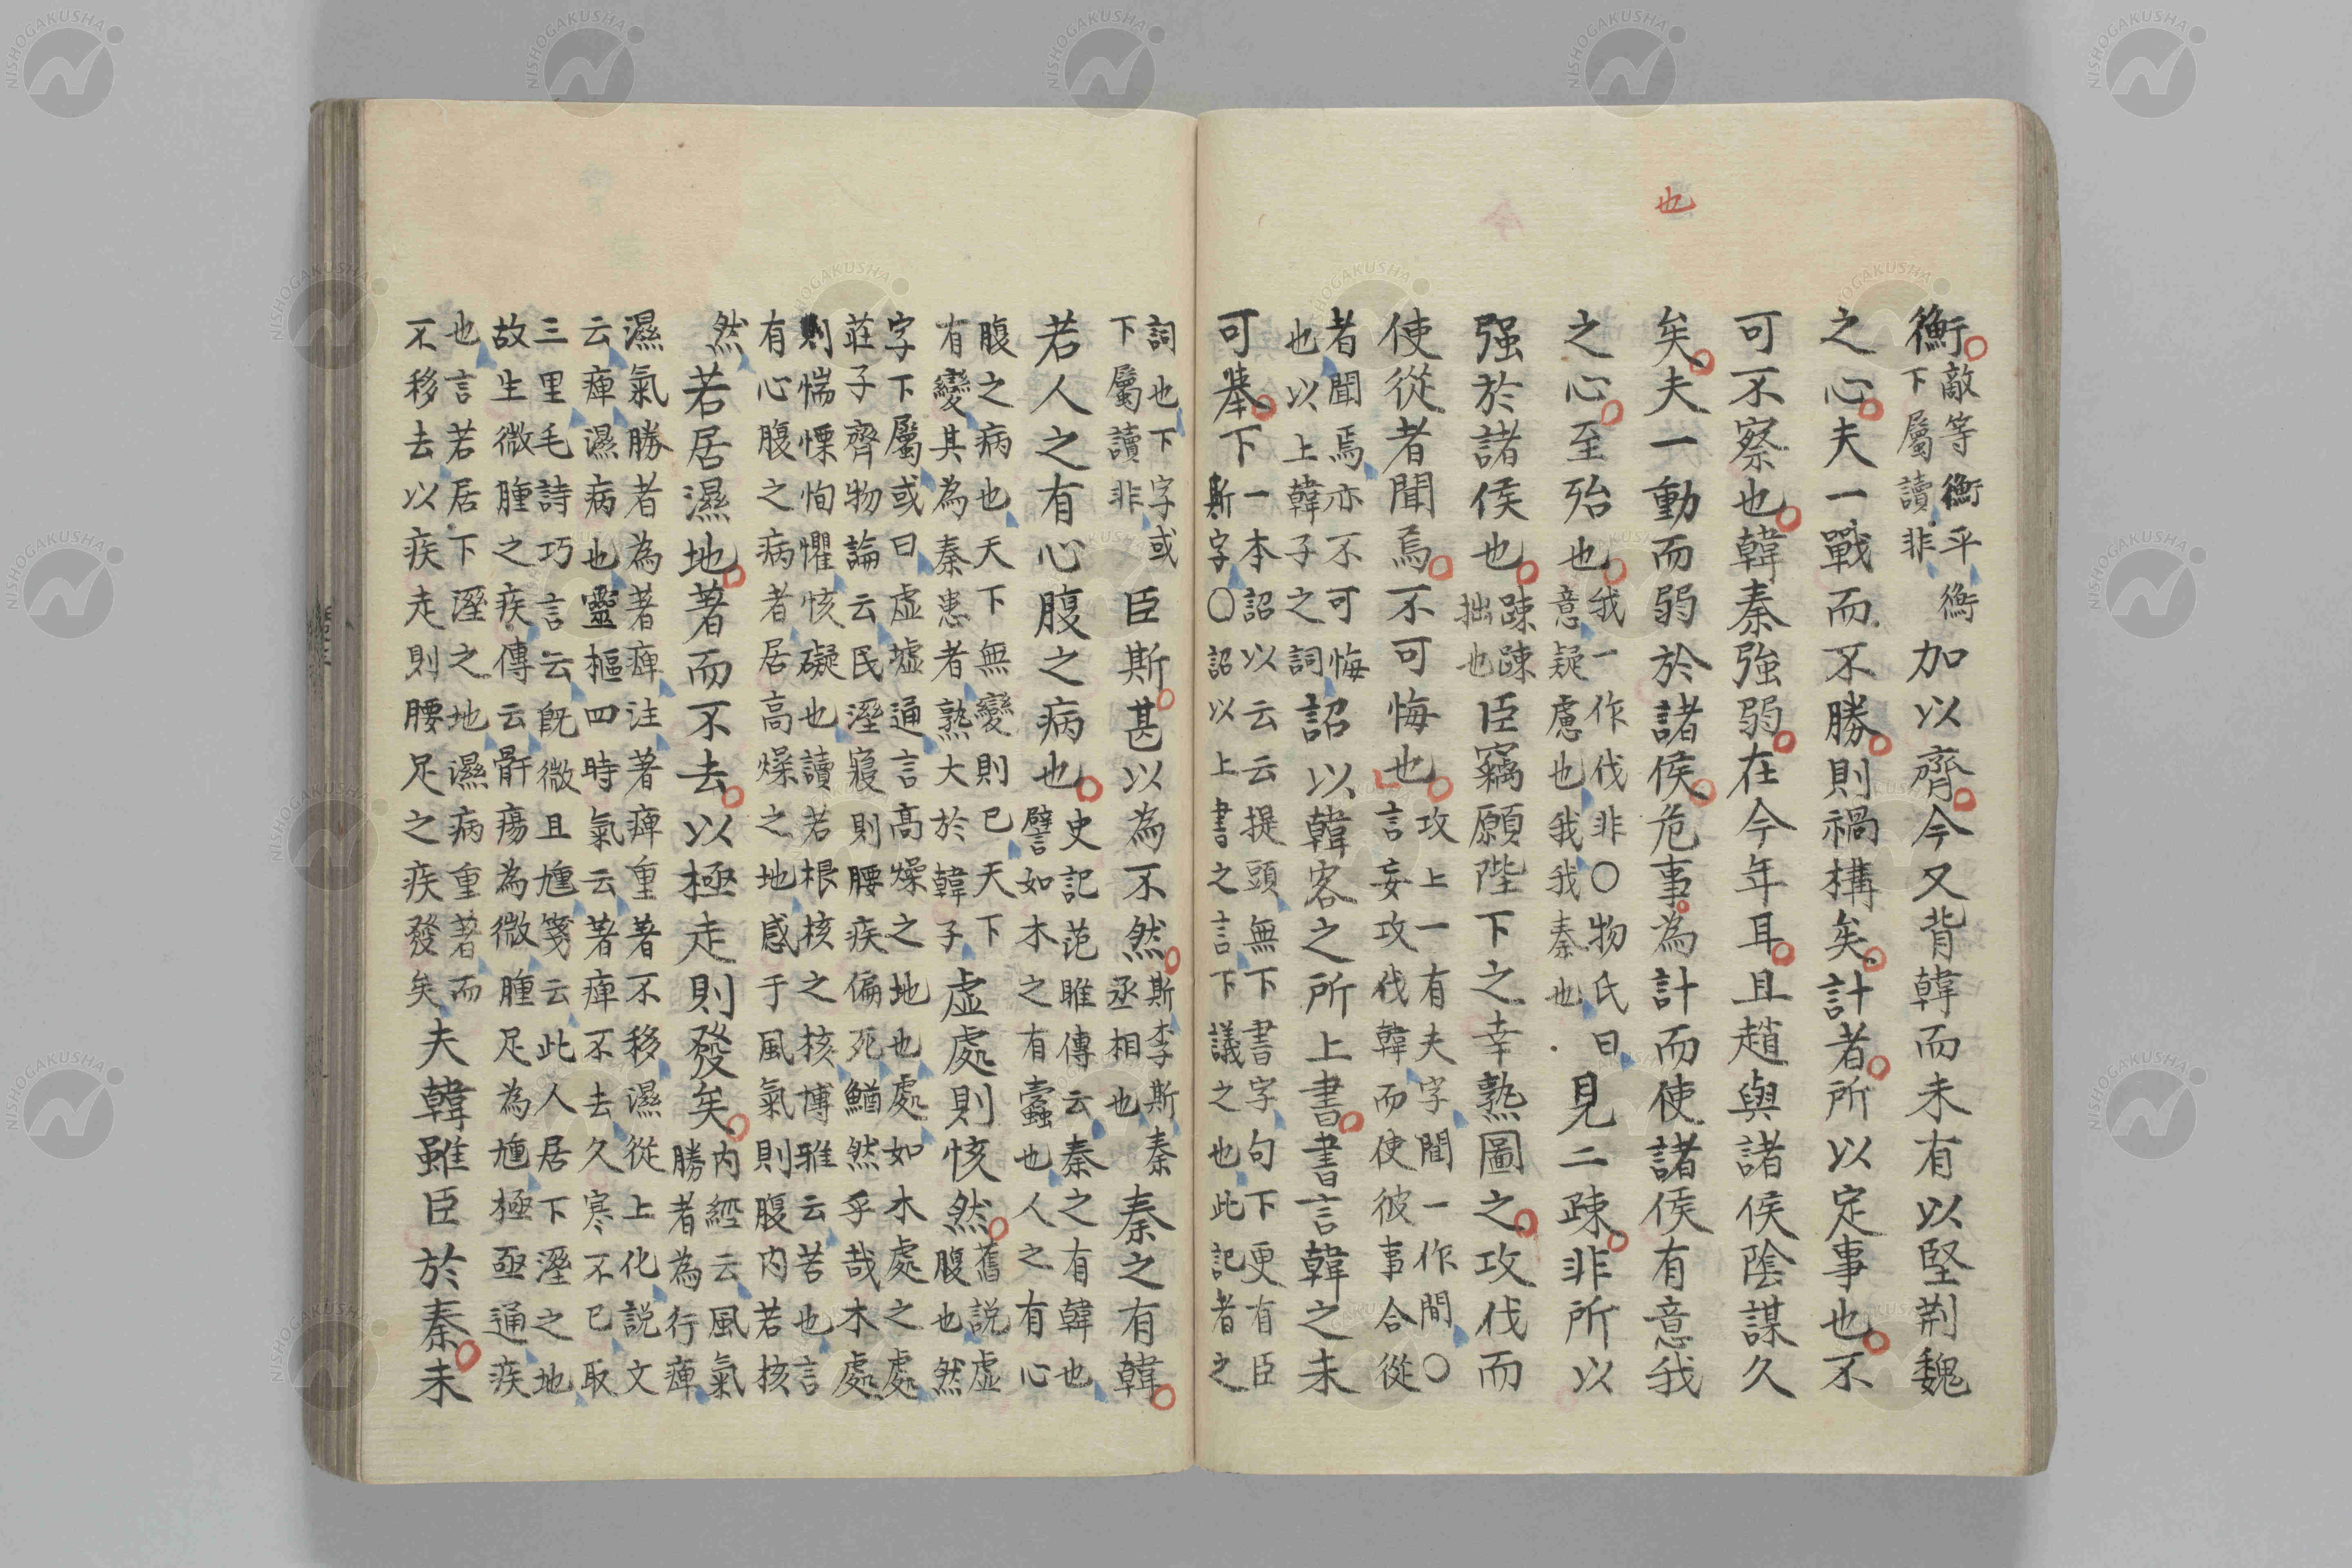 也
衡敵等衡平衡下屬讀非加以齊今又背韓而未有以堅荆魏
之心夫一戰而不勝則禍構矣計者所以定事也不
可不察也韓秦強弱在今年耳且趙與諸侯陰謀久
矣夫一動而弱於諸侯危事為計而使諸侯有意我
之心至殆也我一作伐非〇物氏曰意疑慮也我我秦也見二疎非所以
强於諸侯也疎疎拙也臣竊願陛下之幸熟圖之攻伐而
使從者聞焉不可悔也攻上一有夫字間一作閒〇言妄攻伐韓而使彼事合從
者聞焉亦不可悔也以上韓子之詞詔以韓客之所上書書言韓之未
可擧下一本詔以云云提頭無下書字句下更有臣斯字〇詔以上書之言下議之也此記者之
詞也下字或下屬讀非臣斯甚以為不然斯李斯秦丞相也秦之有韓
若人之有心腹之病也史記范雎傳云秦之有韓也譬如木之有蠹也人之有心
腹之病也天下無變則已天下有變其為秦患者熟大於韓子虛處則㤥然舊説虛腹也然
字下屬或曰虛墟通言高燥之地也處如木處之處莊子齊物論云民溼寢則腰疾偏死鰌然乎哉木處
則惴慄恂懼㤥礙也讀若根核之核博雅云苦也言有心腹之病者居高燥之地感于風氣則腹内若核
然若居濕地著而不去以極走則發矣内經云風氣勝者為行痺
濕氣勝者為著痺注著痺重著不移濕從上化説文云痺濕病也靈樞四時氣云著痺不去久寒不已取
三里毛詩巧言云既微且尰箋云此人居下溼之地故生微腫之疾傳云骭瘍為微腫足為尰極亟通疾
也言若居下溼之地濕病重著而不移去以疾走則腰足之疾發矣夫韓雖臣於秦未